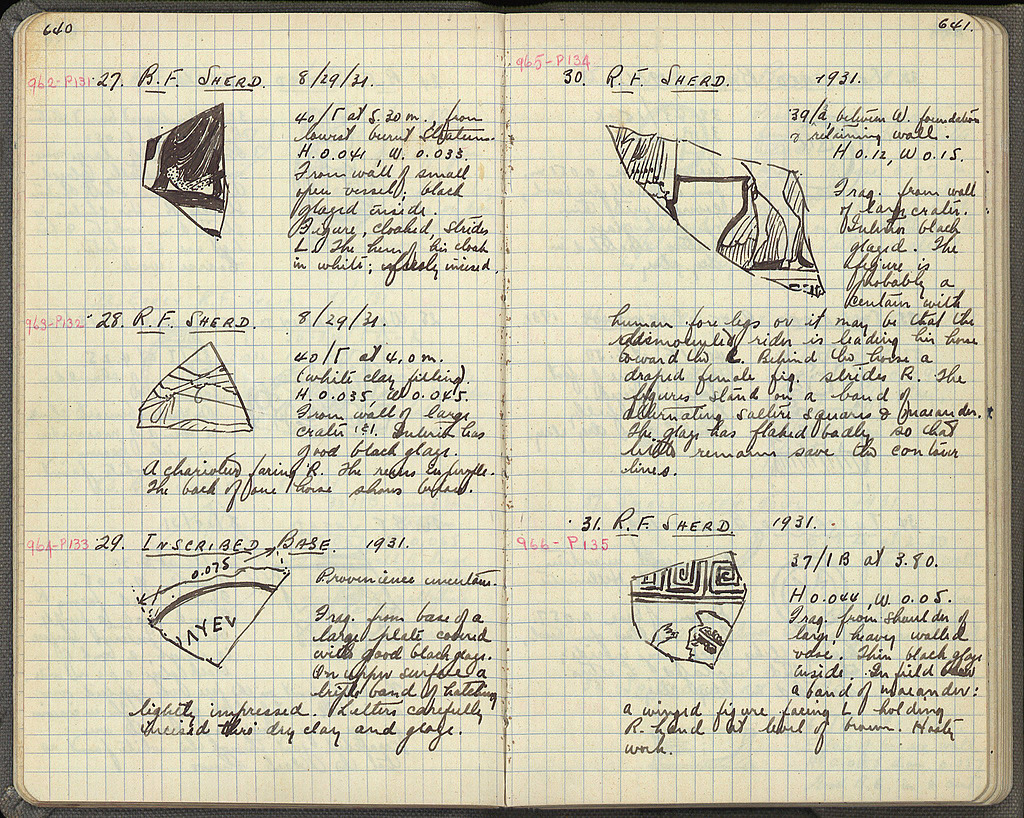 640
962-P131 27. R.F. SHERD. 8/29/31.
40/Γ at 5.30 m., from
lowest burnt stratum.
H. 0.041, W. 0.033.
From wall of small
open vessel; black
glazed inside.
Figure, cloaked, strides
L. The hem of his cloak
in white; incised.
963-P132 28. R.F. SHERD. 8/29/31.
40/Γ at 4.0 m.
(white clay filling).
H. 0.035, W. 0.045.
From wall of large
crater. Interior has
good black glaze.
A charioteer facing R. The reins in purple.
The back of one horse shows below.
964-P133 29. INSCRIBED BASE. 1931.
0.075
Provenience uncertain.
ΛYEV
Frag. from base of a
large plate covered
with good black glaze.
On upper surface a
triple band of hatching
lightly impressed. Letters carefully
incised thro' dry clay and glaze.
641.
965-P134
30. R.F. SHERD. 1931.
39/ between W. foundation
& retaining wall.
H 0.12, W 0.15.
Frag. from wall
of large crater.
Interior black
glazed. The
figure is
probably a
centaur with
human fore legs or it may be that the
dismounted rider is leading his horse
toward the L. Behind the horse a
draped female fig. strides R. The
figures stand on a band of
alternating saltire squares & maeander.
The glaze has flaked badly so that
little remains save the contour
lines.
31. R.F. SHERD. 1931.
966-P135
37/1B at 3.80.
H 0.044, W. 0.05.
Frag. from shoulder of
large heavy walled
vase. Thin black glaze
inside. In field
a band of maeander:
a winged figure facing L. holding
R. hand at level of brow. Hasty
work.